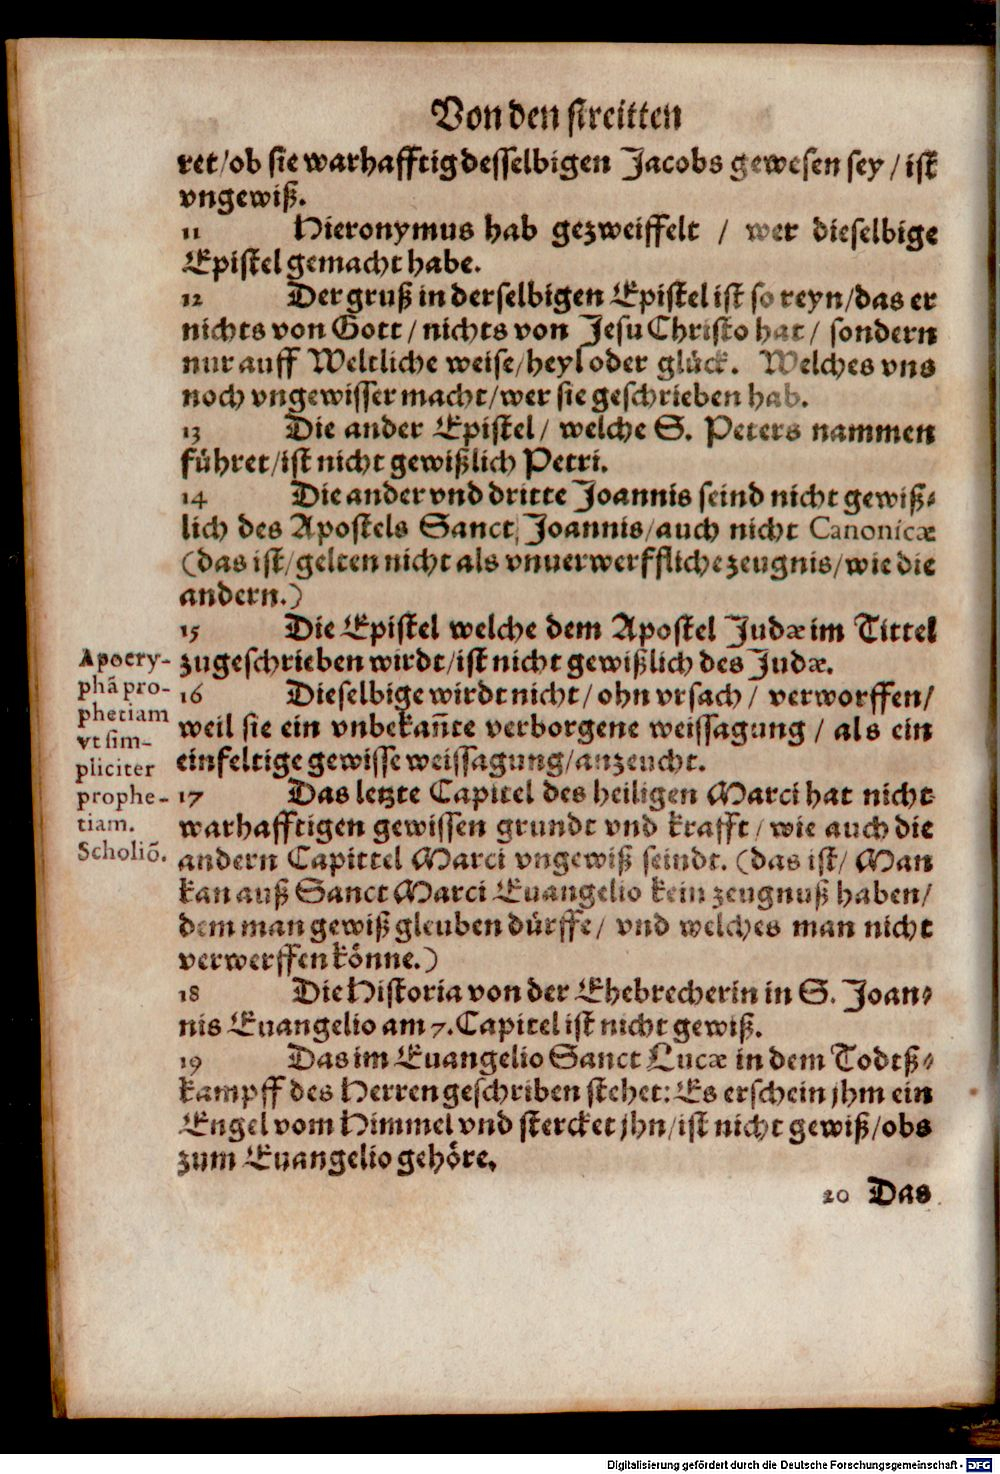 Von den streitten
ret/ob sie warhafftig desselbigen Jacobs gewesen sey / ist
vngewiß.
11 Hieronymus hab gezweiffelt / wer dieselbige
Epistel gemacht habe.
12 Der gruß in derselbigen Epistel ist so reyn/das er
nichts von Gott / nichts von Jesu Christo hat / sondern
nur auff Weltliche weise/heyl oder glück. Welches vns
noch vngewisser macht/wer sie geschrieben hab.
13 Die ander Epistel / welche S. Peters nammen
führet/ist nicht gewißlich Petri.
14 Die ander vnd dritte Joannis seind nicht gewiß-
lich des Apostels Sanct Joannis/auch nicht Canonicæ
(das ist/gelten nicht als vnuerwerffliche zeugnis/wie die
andern.)
15 Die Epistel welche dem Apostel Judæ im Tittel
zugeschrieben wirdt/ist nicht gewißlich des Judæ.
16 Dieselbige wirdt nicht / ohn vrsach / verworffen/
weil sie ein vnbekañte verborgene weissagung / als ein
einfeltige gewisse weissagung/anzeucht.
Apocry-
phā pro-
phetiam
vt sim-
pliciter
prophe-
tiam.
Scholiō.
17 Das letzte Capitel des heiligen Marci hat nicht
warhafftigen gewissen grundt vnd krafft / wie auch die
andern Capittel Marci vngewiß seindt. (das ist/ Man
kan auß Sanct Marci Euangelio kein zeugnuß haben/
dem man gewiß gleuben dürffe / vnd welches man nicht
verwerffen könne.)
18 Die Historia von der Ehebrecherin in S. Joan-
nis Euangelio am 7. Capitel ist nicht gewiß.
19 Das im Euangelio Sanct Lucæ in dem Todtß-
kampff des Herren geschriben stehet: Es erschein jhm ein
Engel vom Himmel vnd stercket jhn/ist nicht gewiß/obs
zum Euangelio gehöre.
20 Das
Digitalisierung gefördert durch die Deutsche Forschungsgemeinschaft - DFG